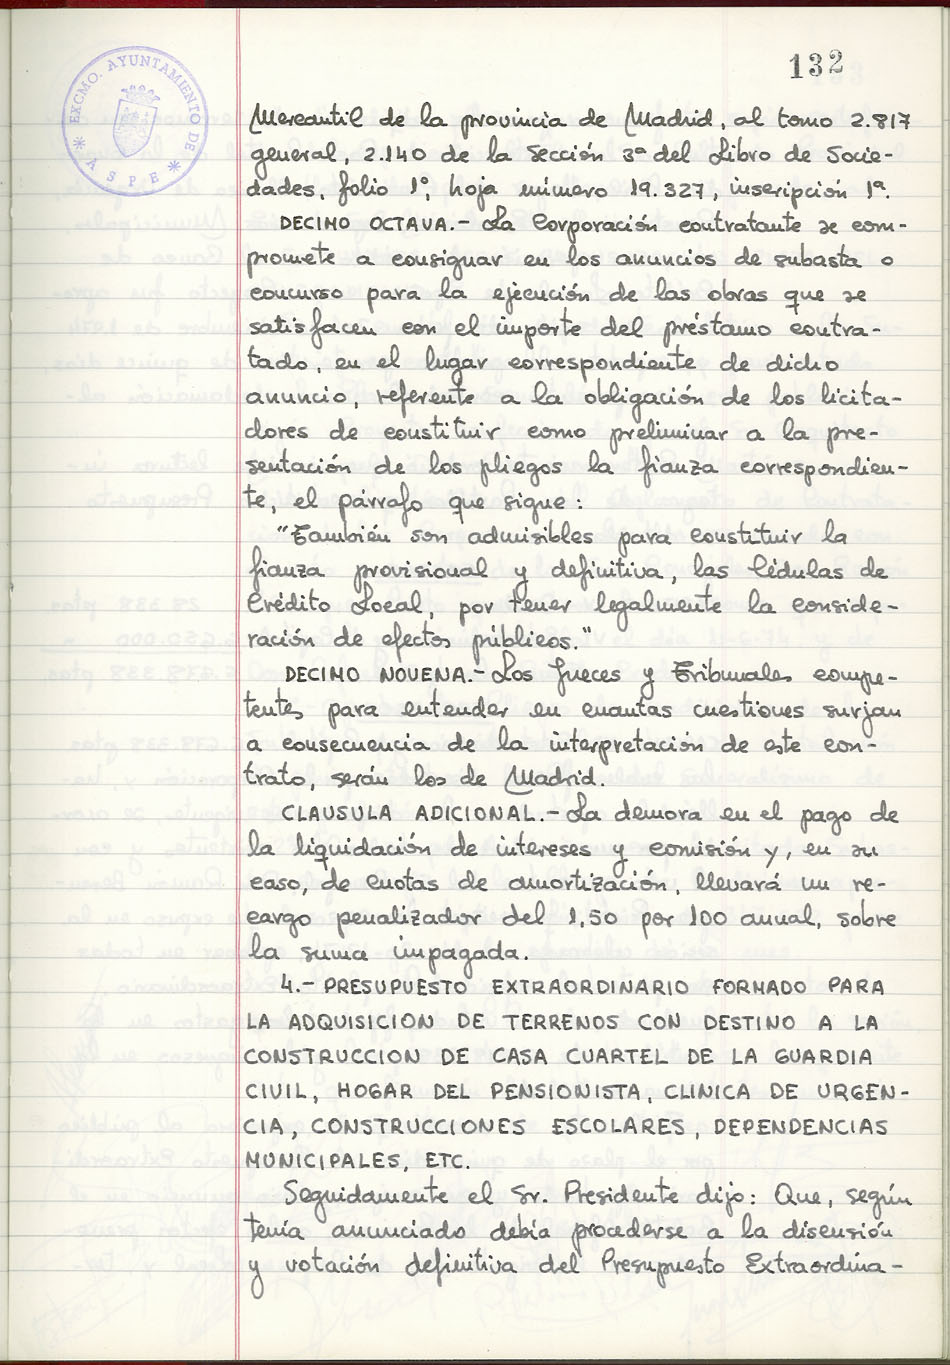 132
EXCMO. AYUNTAMIENTO DE
* ASPE *
Mercantil de la provincia de Madrid, al tomo 2.817
general, 2.140 de la Sección 3ª del Libro de Socie-
dades, folio 1º, hoja número 19.327, inscripción 1ª.
DECIMO OCTAVA.- La Corporación contratante se com-
promete a consignar en los anuncios de subasta o
concurso para la ejecución de las obras que se
satisfacen con el importe del préstamo contra-
tado, en el lugar correspondiente de dicho
anuncio, referente a la obligación de los licita-
dores de constituir como preliminar a la pre-
sentación de los pliegos la fianza correspondien-
te, el párrafo que sigue:
"También son admisibles para constituir la
fianza provisional y definitiva, las Cédulas de
Crédito Local, por tener legalmente la conside-
ración de efectos públicos."
DECIMO NOVENA.- Los Jueces y Tribunales compe-
tentes para entender en cuantas cuestiones surjan
a consecuencia de la interpretación de este con-
trato, serán los de Madrid.
CLAUSULA ADICIONAL.- La demora en el pago de
la liquidación de intereses y comisión y, en su
caso, de cuotas de amortización, llevará un re-
cargo penalizador del 1,50 por 100 anual, sobre
la suma impagada.
4.- PRESUPUESTO EXTRAORDINARIO FORMADO PARA
LA ADQUISICION DE TERRENOS CON DESTINO A LA
CONSTRUCCION DE CASA CUARTEL DE LA GUARDIA
CIVIL, HOGAR DEL PENSIONISTA, CLINICA DE URGEN-
CIA, CONSTRUCCIONES ESCOLARES, DEPENDENCIAS
MUNICIPALES, ETC.
Seguidamente el Sr. Presidente dijo: Que, según
tenía anunciado debía procederse a la discusión
y votación definitiva del Presupuesto Extraordina-